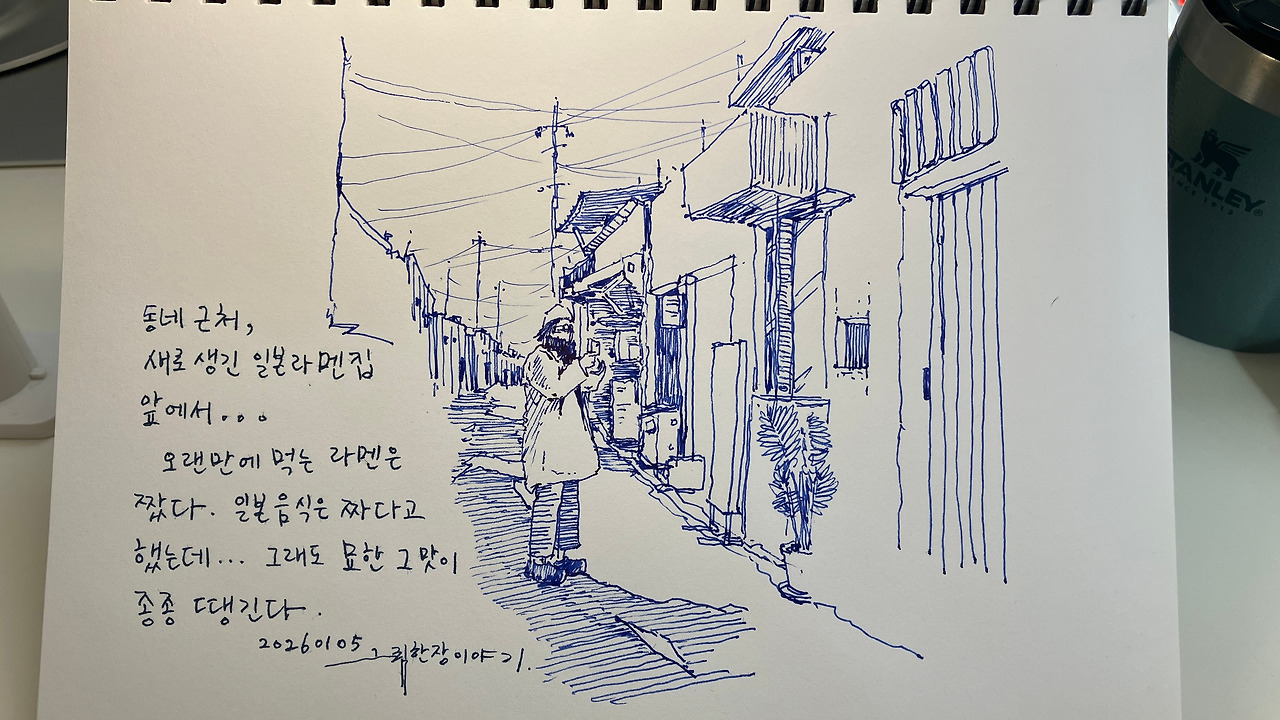 동네 근처,
새로 생긴 일본라멘집
앞에서...
오랜만에 먹는 라멘은
짰다. 일본음식은 짜다고
했는데... 그래도 묘한 그맛이
종종 땡긴다.
20260105 그림한장이야기.
STANLEY
SINCE 1913